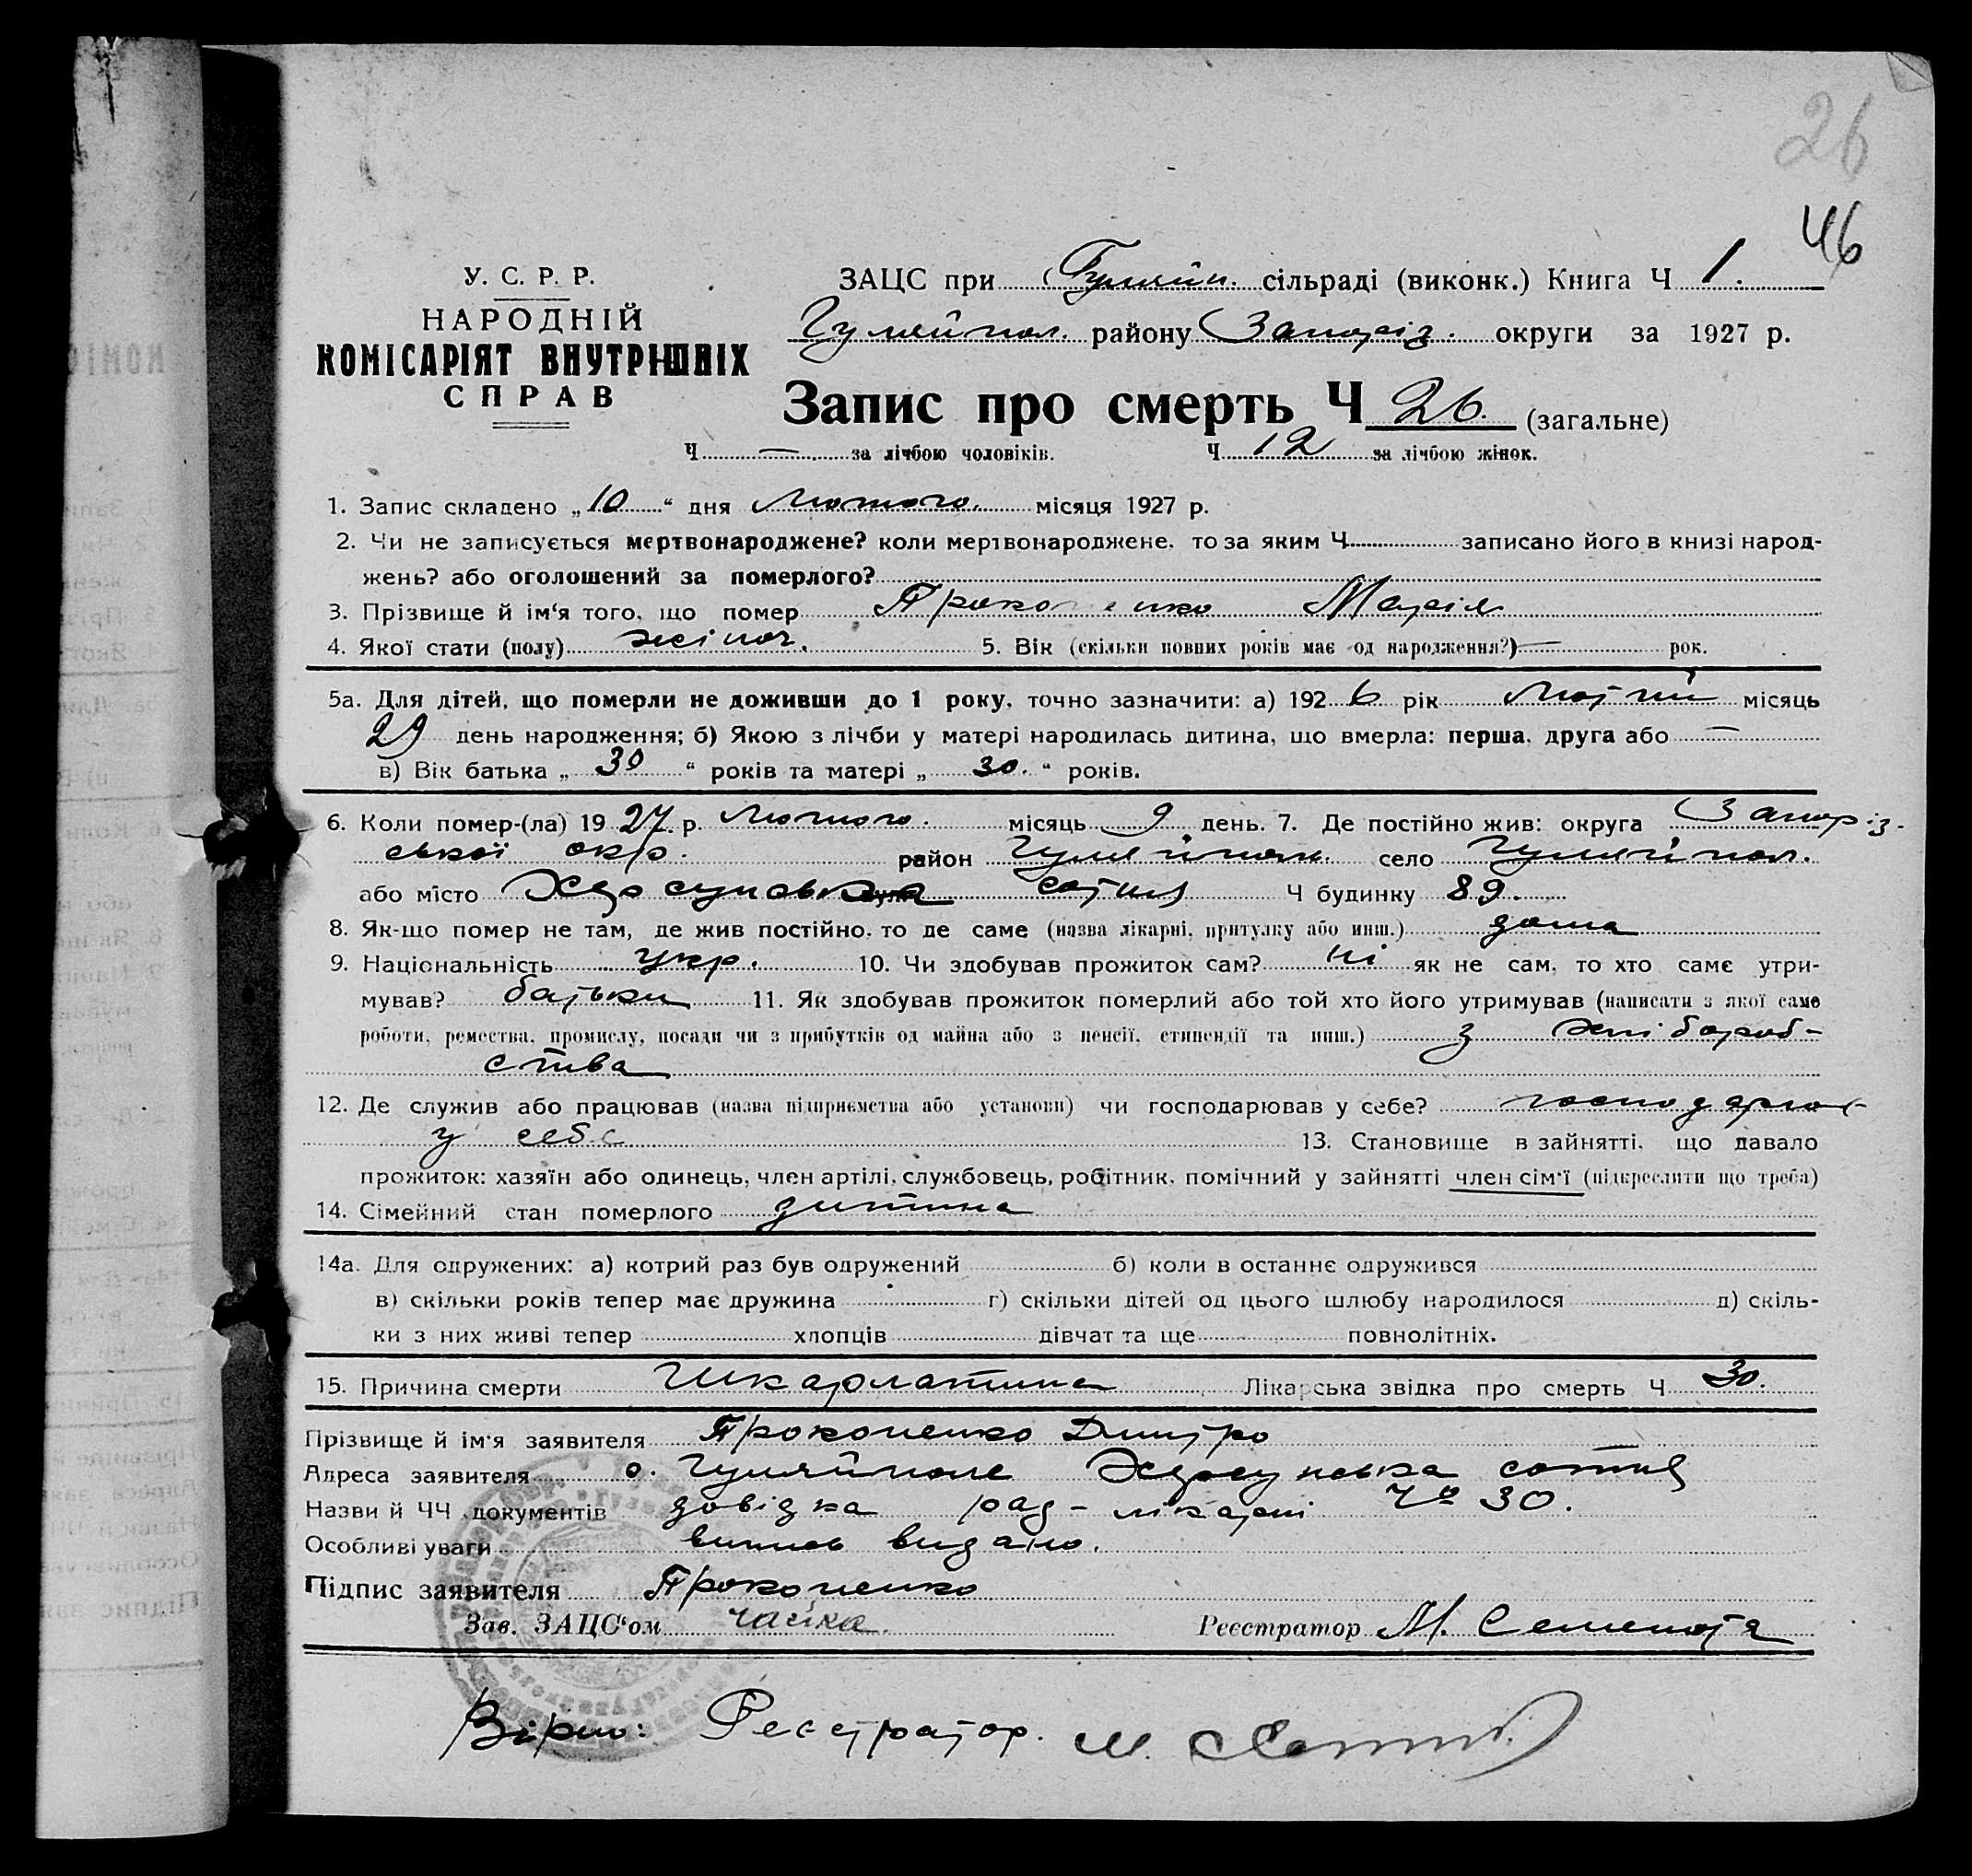 26
46
У. С. Р. Р.
НАРОДНІЙ
КОМІСАРІЯТ ВНУТРІШНІХ
СПРАВ
ЗАЦС при Гуляйп. сільраді (виконк.) Книга Ч 1.
Гуляйпол. району Запоріз. округи за 1927 р.
Запис про смерть Ч 26. (загальне)
Ч — за лічбою чоловіків. Ч 12 за лічбою жінок.
1. Запис складено „10“ дня Лютого. місяця 1927 р.
2. Чи не записується мертвонароджене? коли мертвонароджене, то за яким Ч записано його в книзі народ-
жень? або оголошений за померлого?
3. Прізвище й ім‘я того, що помер Прокопенко Марія
4. Якої стати (полу) жіноч. 5. Вік (скільки повних років має од народження?) — рок.
5а. Для дітей, що померли не доживши до 1 року, точно зазначити: а) 1926 рік Лютий місяць
29 день народження; б) Якою з лічби у матері народилась дитина, що вмерла: перша, друга або —
в) Вік батька „30“ років та матері „30.“ років.
6. Коли помер-(ла) 1927. р. Лютого. місяць 9 день. 7. Де постійно жив: округа Запоріз-
ської окр. район Гуляйпол. село Гуляйпол.
або місто Херсунська сотня Ч будинку 89.
8. Як-що помер не там, де жив постійно, то де саме (назва лікарні, притулку або инш.) дома
9. Національність укр. 10. Чи здобував прожиток сам? ні як не сам, то хто саме утри-
мував? батьки 11. Як здобував прожиток померлий або той хто його утримував (написати з якої саме
роботи, ремества, промислу, посади чи з прибутків од майна або з пенсії, стипендії та инш.) з хлібороб-
ства
12. Де служив або працював (назва підприємства або установи) чи господарював у себе? господарює
у себе 13. Становище в зайнятті, що давало
прожиток: хазяїн або одинець, член артілі, службовець, робітник, помічний у зайнятті член сім‘ї (підкреслити що треба)
14. Сімейний стан померлого дитина
14а. Для одружених: а) котрий раз був одружений б) коли в останнє одружився
в) скільки років тепер має дружина г) скільки дітей од цього шлюбу народилося д) скіль-
ки з них живі тепер хлопців дівчат та ще повнолітніх.
15. Причина смерти Шкарлатина Лікарська звідка про смерть Ч 30.
Прізвище й ім‘я заявителя Прокопенко Дмитро
Адреса заявителя с. Гуляйполе Херсунська сотня
Назви й ЧЧ документів довідка рад-лікарні № 30.
Особливі уваги випись видано.
Підпис заявителя Прокопенко
Зав. ЗАЦС‘ом Чайка. Реєстратор М.
Вірно: Реєстратор. М.